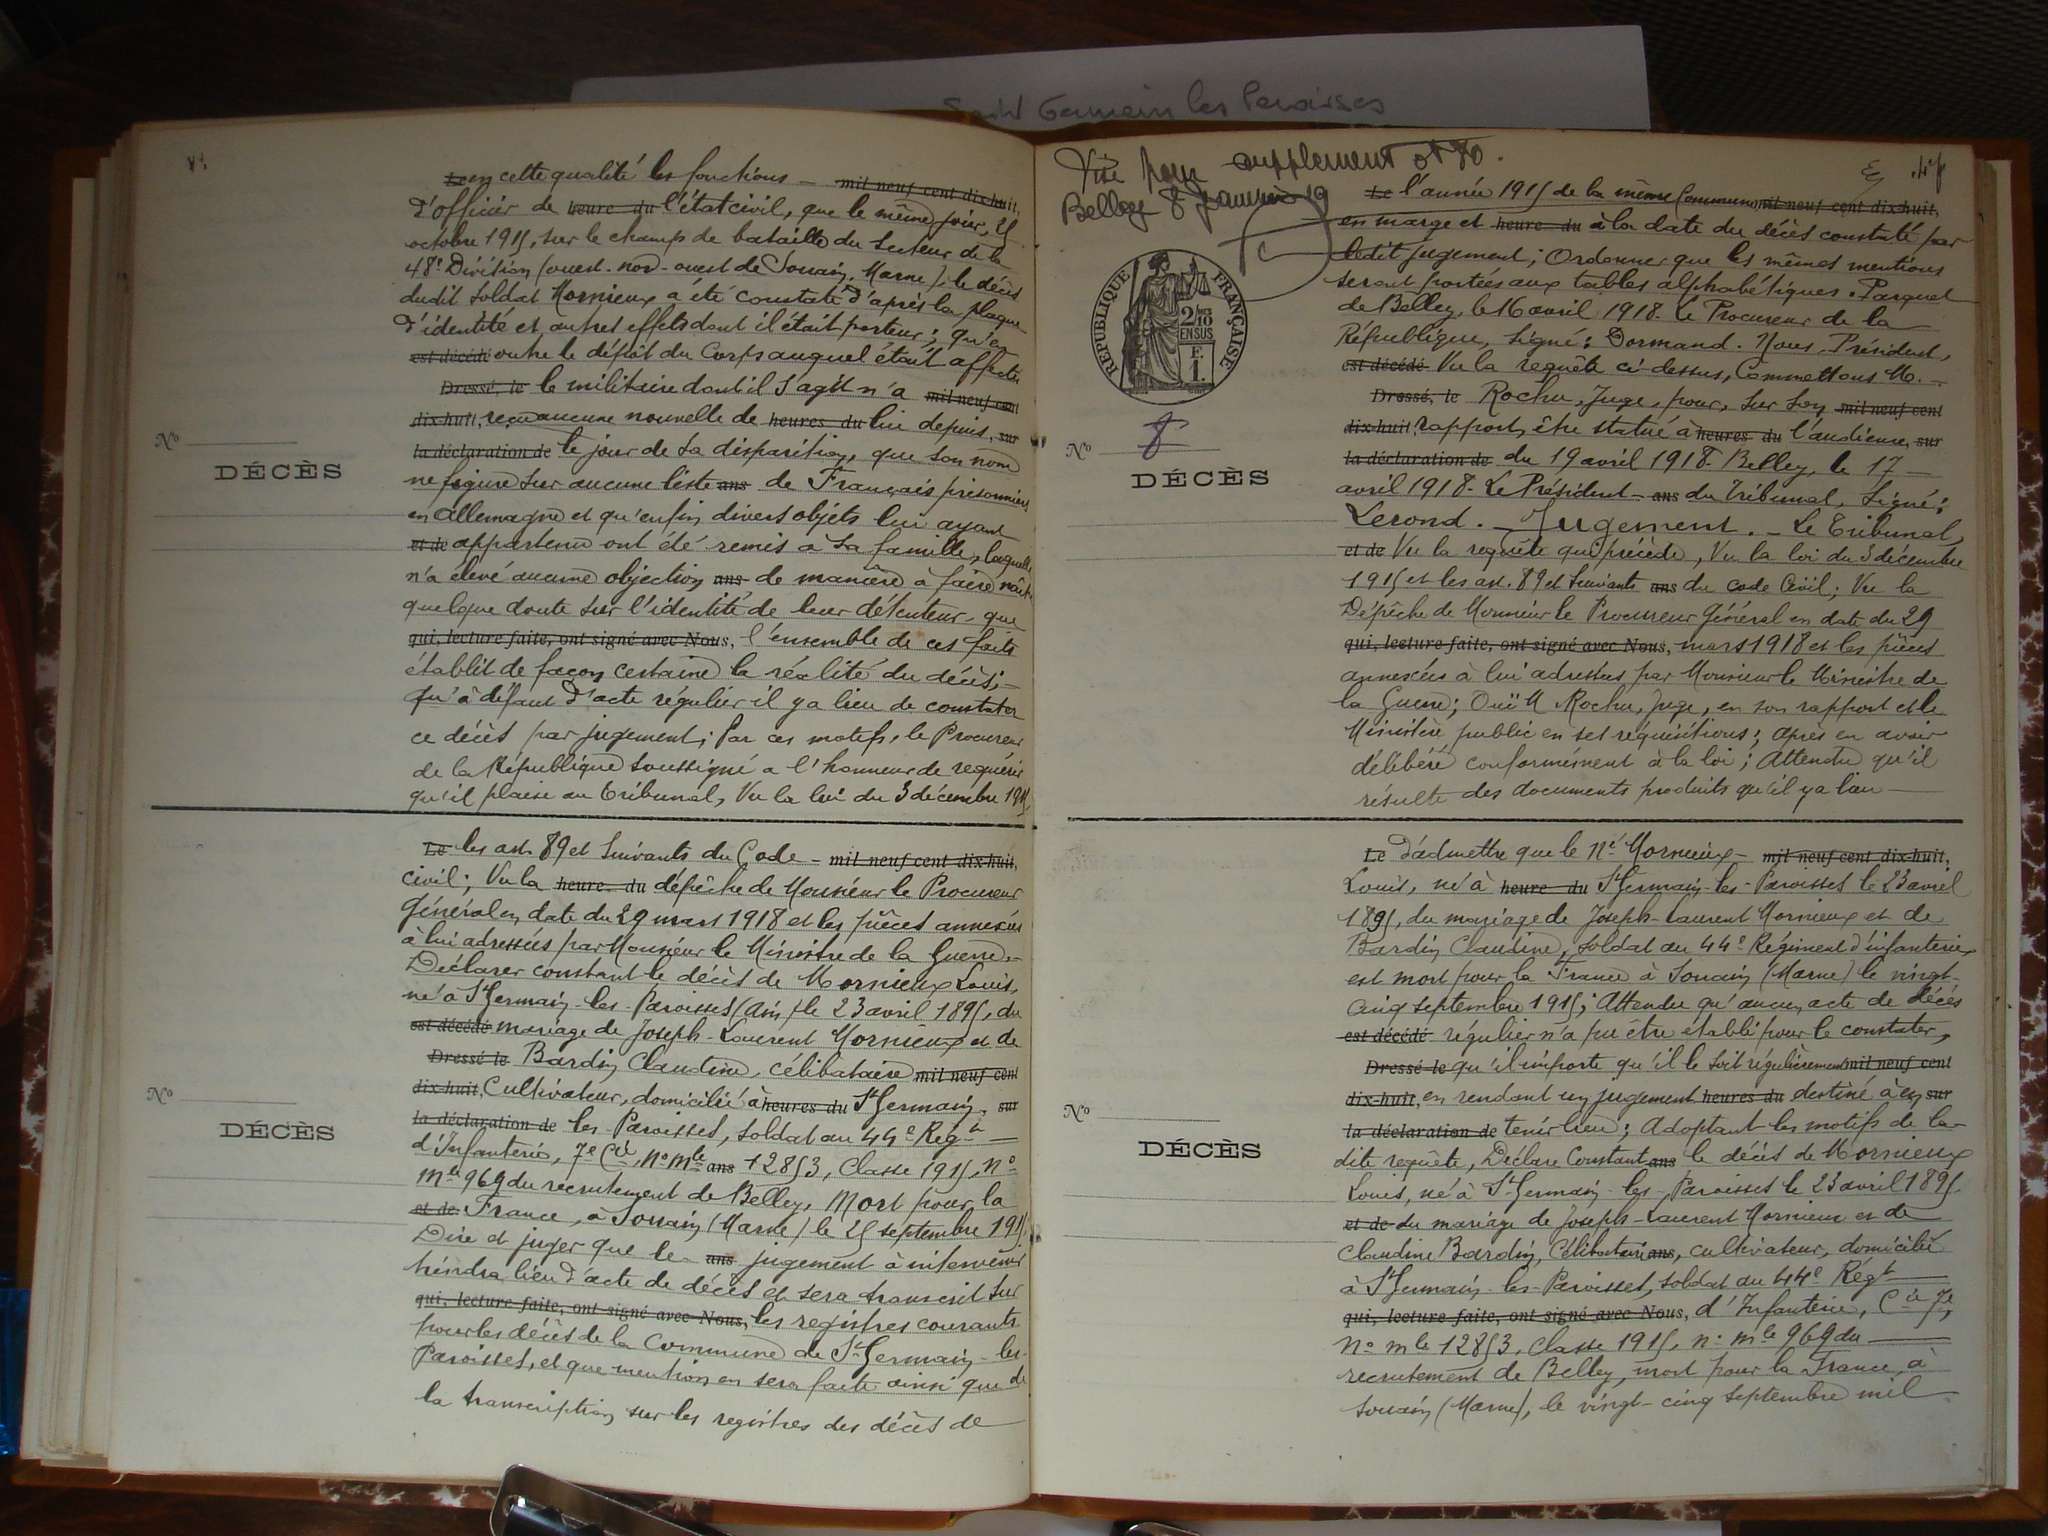 Saint Germain les Paroisses
Le en cette qualité les fonctions – mil neuf cent dix-huit,
d'officier de heure du l'état civil, que le même jour, 25
octobre 1915, sur le champ de bataille du Secteur de la
48e Division (ouest-nord-ouest de Souain, Marne), le décès
dudit soldat Mornieux a été constaté d'après la plaque
d'identité et autres effets dont il était porteur; qu'en
est décédé outre le dépôt du Corps auquel était affecté
Dressé, le le militaire dont il s'agit n'a mil neuf cent
dix-huit, reçu aucune nouvelle de heures du lui depuis, sur
la déclaration de le jour de sa disparition, que son nom
ne figure sur aucune liste ans de Français prisonniers
en Allemagne et qu'enfin divers objets lui ayant
et de appartenu ont été remis à sa famille, laquelle
n'a élevé aucune objection ans de manière à faire naître
quelque doute sur l'identité de leur détenteur, que
qui, lecture faite, ont signé avec Nous, l'ensemble de ces faits
établit de façon certaine la réalité du décès; –
qu'à défaut d'acte régulier il y a lieu de constater
ce décès par jugement; Par ces motifs, le Procureur
de la République soussigné a l'honneur de requérir
qu'il plaise au Tribunal, Vu la loi du 3 décembre 1915,
No
DÉCÈS
Le les art. 89 et suivants du Code – mil neuf cent dix-huit,
civil; Vu la heure du dépêche de Monsieur le Procureur
Général en date du 29 mars 1918 et les pièces annexées
à lui adressées par Monsieur le Ministre de la Guerre. –
Déclarer constant le décès de Mornieux Louis,
né à St Germain-les-Paroisses (Ain) le 23 avril 1895, du
est décédé mariage de Joseph-Laurent Mornieux et de
Dressé le Bardin Claudine, célibataire mil neuf cent
dix-huit, Cultivateur, domicilié à heures du St Germain, sur
la déclaration de les Paroisses, soldat au 44e Régt
d'Infanterie, 7e Cie, No mle ans 12853, Classe 1915, No
mle 969 du recrutement de Belley, Mort pour la
et de France, à Souain (Marne) le 25 septembre 1915.
Dire et juger que le ans jugement à intervenir
tiendra lieu d'acte de décès et sera transcrit sur
qui, lecture faite, ont signé avec Nous, les registres courants
pour les décès de la Commune de St Germain-les-
Paroisses, et que mention en sera faite ainsi que de
la transcription sur les registres des décès de
No
DÉCÈS
Visé pour supplément
Belley 8 janvier 19
RÉPUBLIQUE FRANÇAISE
2/10 EN SUS
F.
1.
Le l'année 1915 de la même Commune, mil neuf cent dix-huit,
en marge et heure du à la date du décès constaté par
ledit jugement; Ordonner que les mêmes mentions
seront portées aux tables alphabétiques. Parquet
de Belley, le 16 avril 1918. Le Procureur de la
République, Signé: Dormand. Nous, Président,
est décédé Vu la requête ci-dessus, Commettons M. –
Dressé, le Rochu, Juge, pour, sur son mil neuf cent
dix-huit, rapport, être statué à heures du l'audience, sur
la déclaration de du 19 avril 1918. Belley, le 17 –
avril 1918. Le Président – ans du Tribunal, Signé:
Lerond. – Jugement. – Le Tribunal,
et de Vu la requête qui précède, Vu la loi du 3 décembre
1915 et les art. 89 et suivants ans du code Civil; Vu la
Dépêche de Monsieur le Procureur Général en date du 29
qui, lecture faite, ont signé avec Nous, mars 1918 et les pièces
annexées à lui adressées par Monsieur le Ministre de
la Guerre; Ouï M. Rochu, Juge, en son rapport et le
Ministère public en ses réquisitions; après en avoir
délibéré conformément à la loi; Attendu qu'il
résulte des documents produits qu'il y a lieu –
No 8
DÉCÈS
Le d'admettre que le né Mornieux – mil neuf cent dix-huit,
Louis, né à heure du St Germain-les-Paroisses le 23 avril
1895, du mariage de Joseph-Laurent Mornieux et de
Bardin Claudine, soldat au 44e Régiment d'infanterie,
est mort pour la France à Souain (Marne) le vingt-
cinq septembre 1915; Attendu qu'aucun acte de décès
est décédé régulier n'a pu être établi pour le constater,
Dressé le qu'il importe qu'il le soit régulièrement mil neuf cent
dix-huit, en rendant un jugement heures du destiné à en sur
la déclaration de tenir lieu; Adoptant les motifs de la
dite requête, Déclare Constant ans le décès de Mornieux
Louis, né à St Germain-les-Paroisses le 23 avril 1895,
et de du mariage de Joseph-Laurent Mornieux et de
Claudine Bardin, Célibataire ans, cultivateur, domicilié
à St Germain-les-Paroisses, soldat au 44e Régt
qui, lecture faite, ont signé avec Nous, d'Infanterie, Cie 7e,
No mle 12853, Classe 1915, no mle 969 du
recrutement de Belley, mort pour la France, à
Souain (Marne), le vingt-cinq septembre mil
No
DÉCÈS